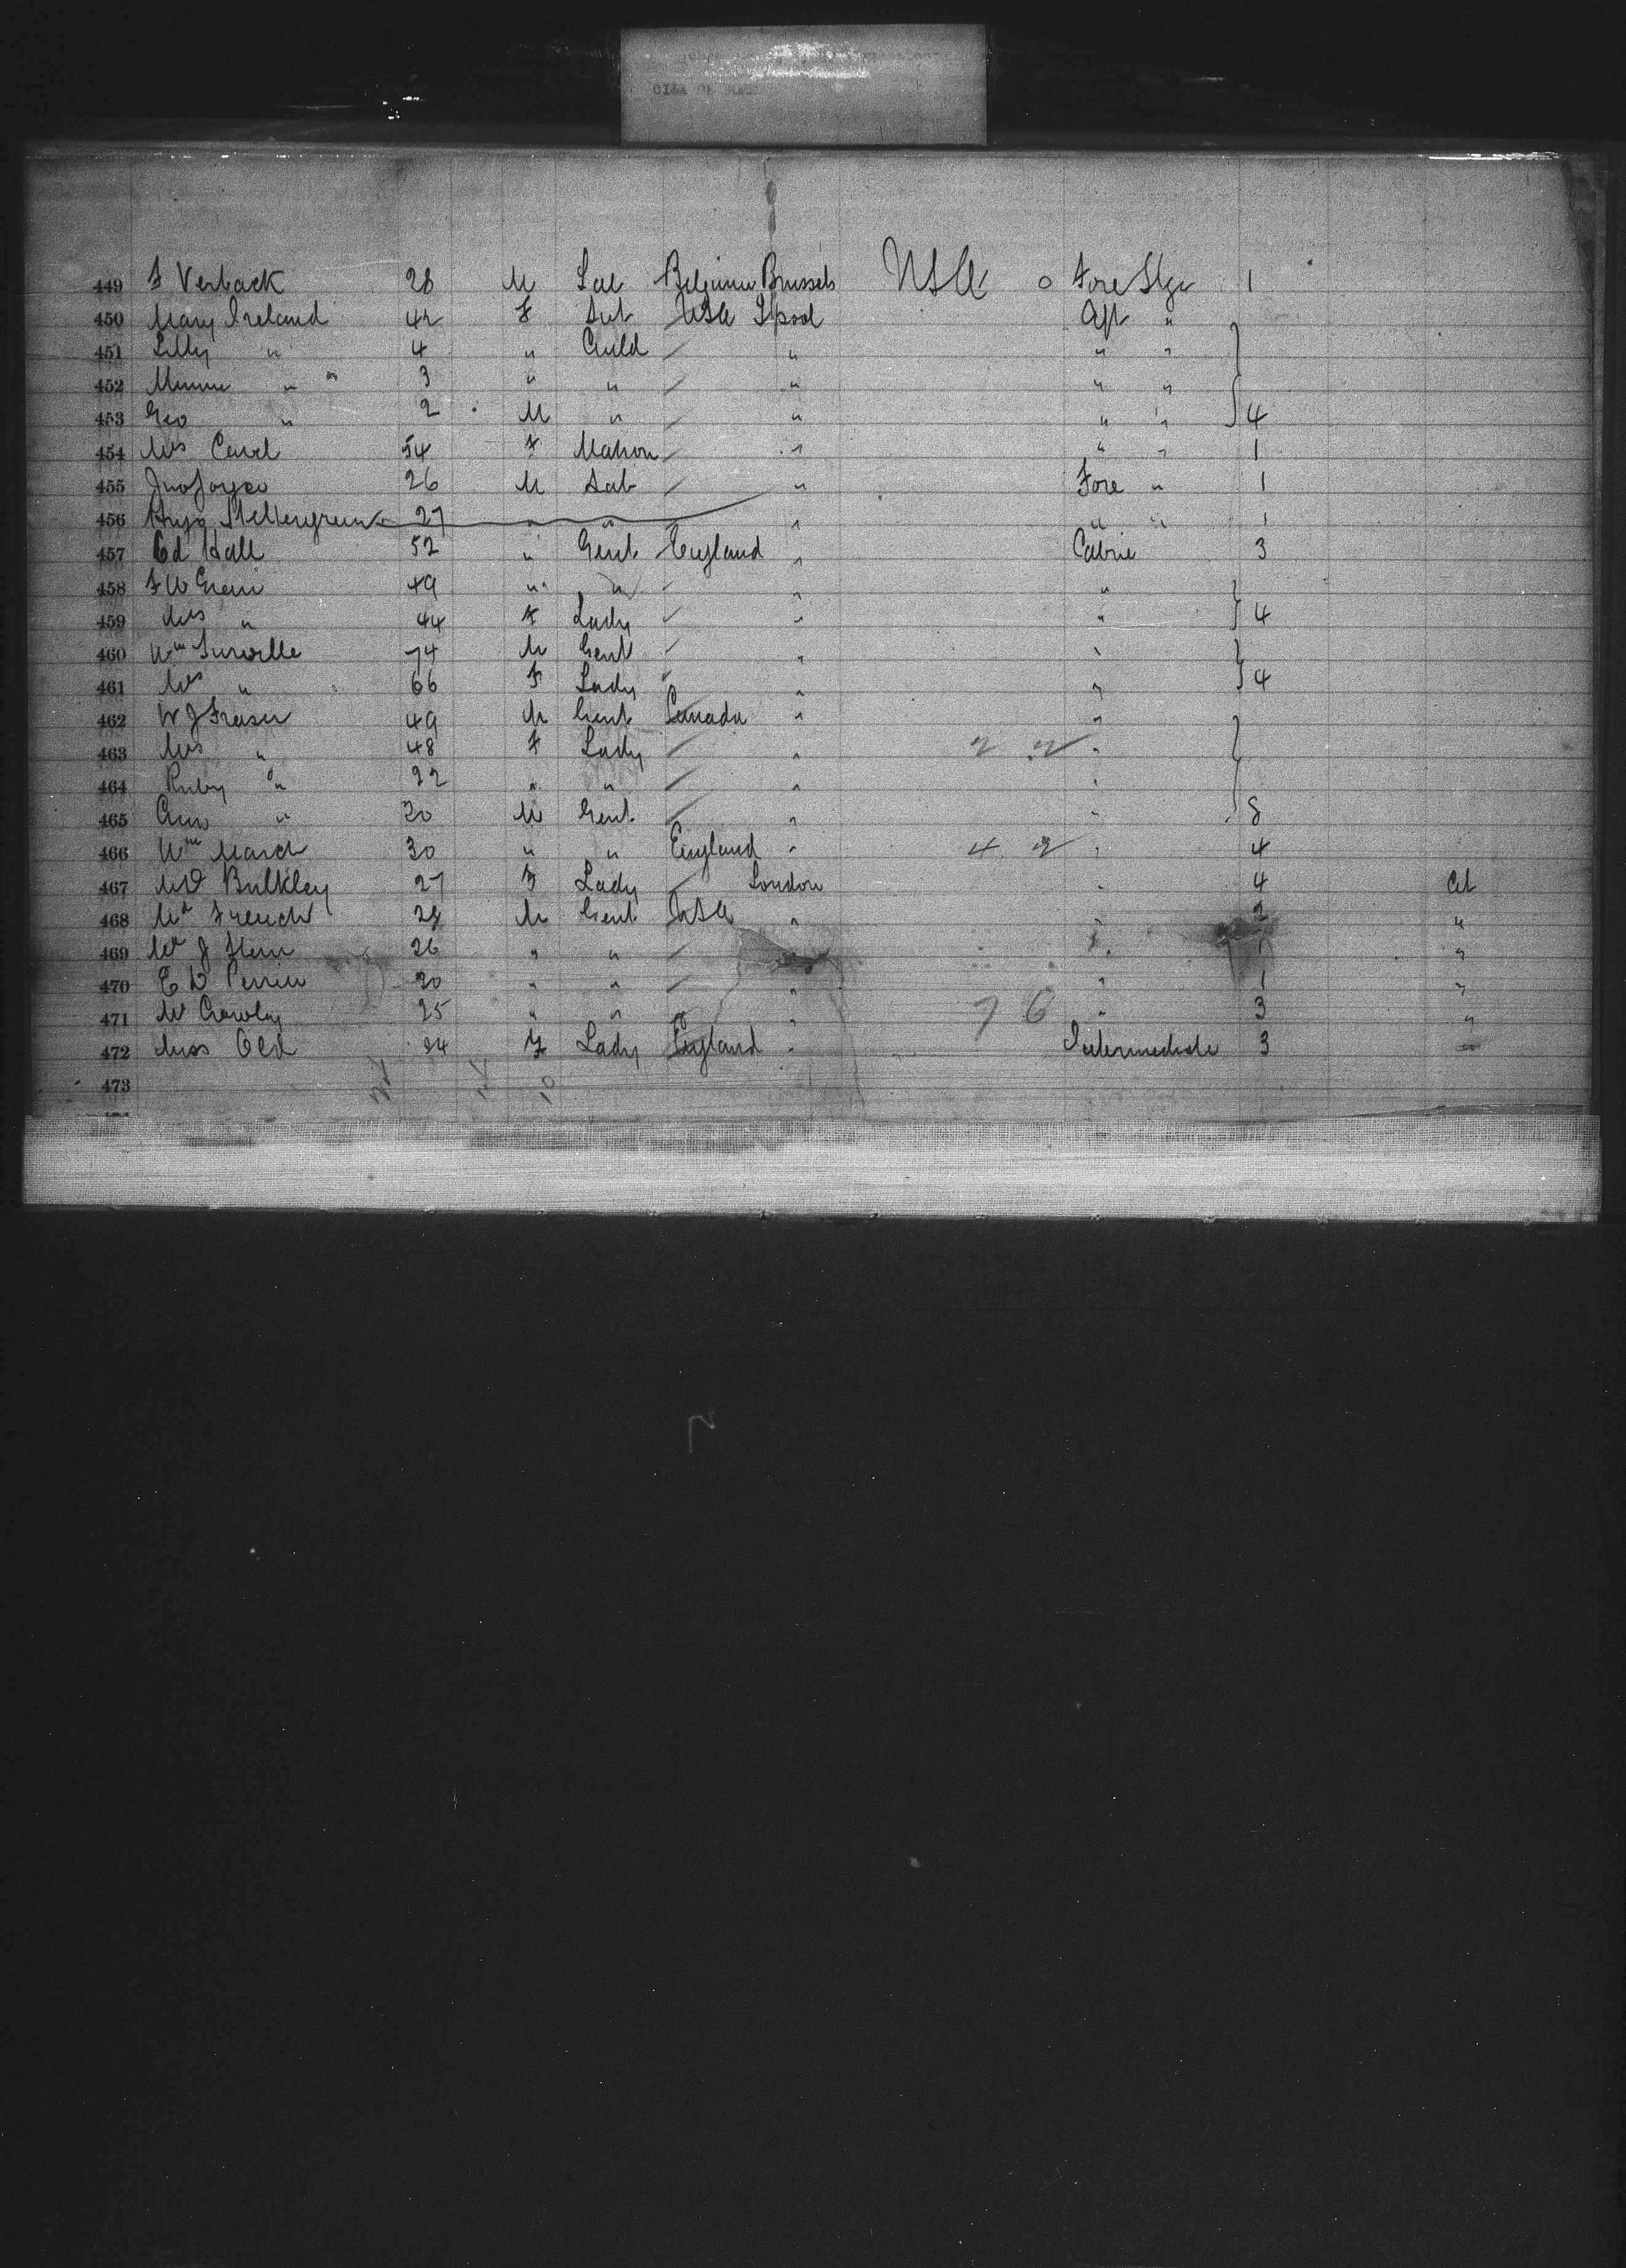 449 F Verback 28 M Lab Belgium Brussels USA o Fore Stge 1
450 Mary Ireland 42 F Svt USA L'pool Aft "
451 Lilly " 4 " Child / " " "
452 Minnie " 3 " " / " " "
453 Geo " 2 M " / " " " 4
454 Mrs 54 F Matron / " " " 1
455 Jno Joyce 26 M Lab / " Fore " 1
456 27 " " " " " 1
457 Ed Hall 52 " Gent England " Cabin 3
458 F W 49 " " / " "
459 Mrs " 44 F Lady / " " 4
460 Wm 74 M Gent / " "
461 Mrs " 66 F Lady / " " 4
462 W J Fraser 49 M Gent Canada " "
463 Mrs " 48 F Lady / " 2 2 "
464 Ruby " 22 " " / " "
465 " 20 M Gent / " " 8
466 Wm March 30 " " England " 4 2 " 4
467 Bulkley 27 F Lady / London " 4
468 Mr French 28 M Gent USA " " 2 "
469 Mr J 26 " " / " 1 "
470 E D 20 " " / " " 1 "
471 Mr Crowley 25 " " " 7 6 " 3 "
472 Miss Old 24 F Lady England " Intermediate 3
473